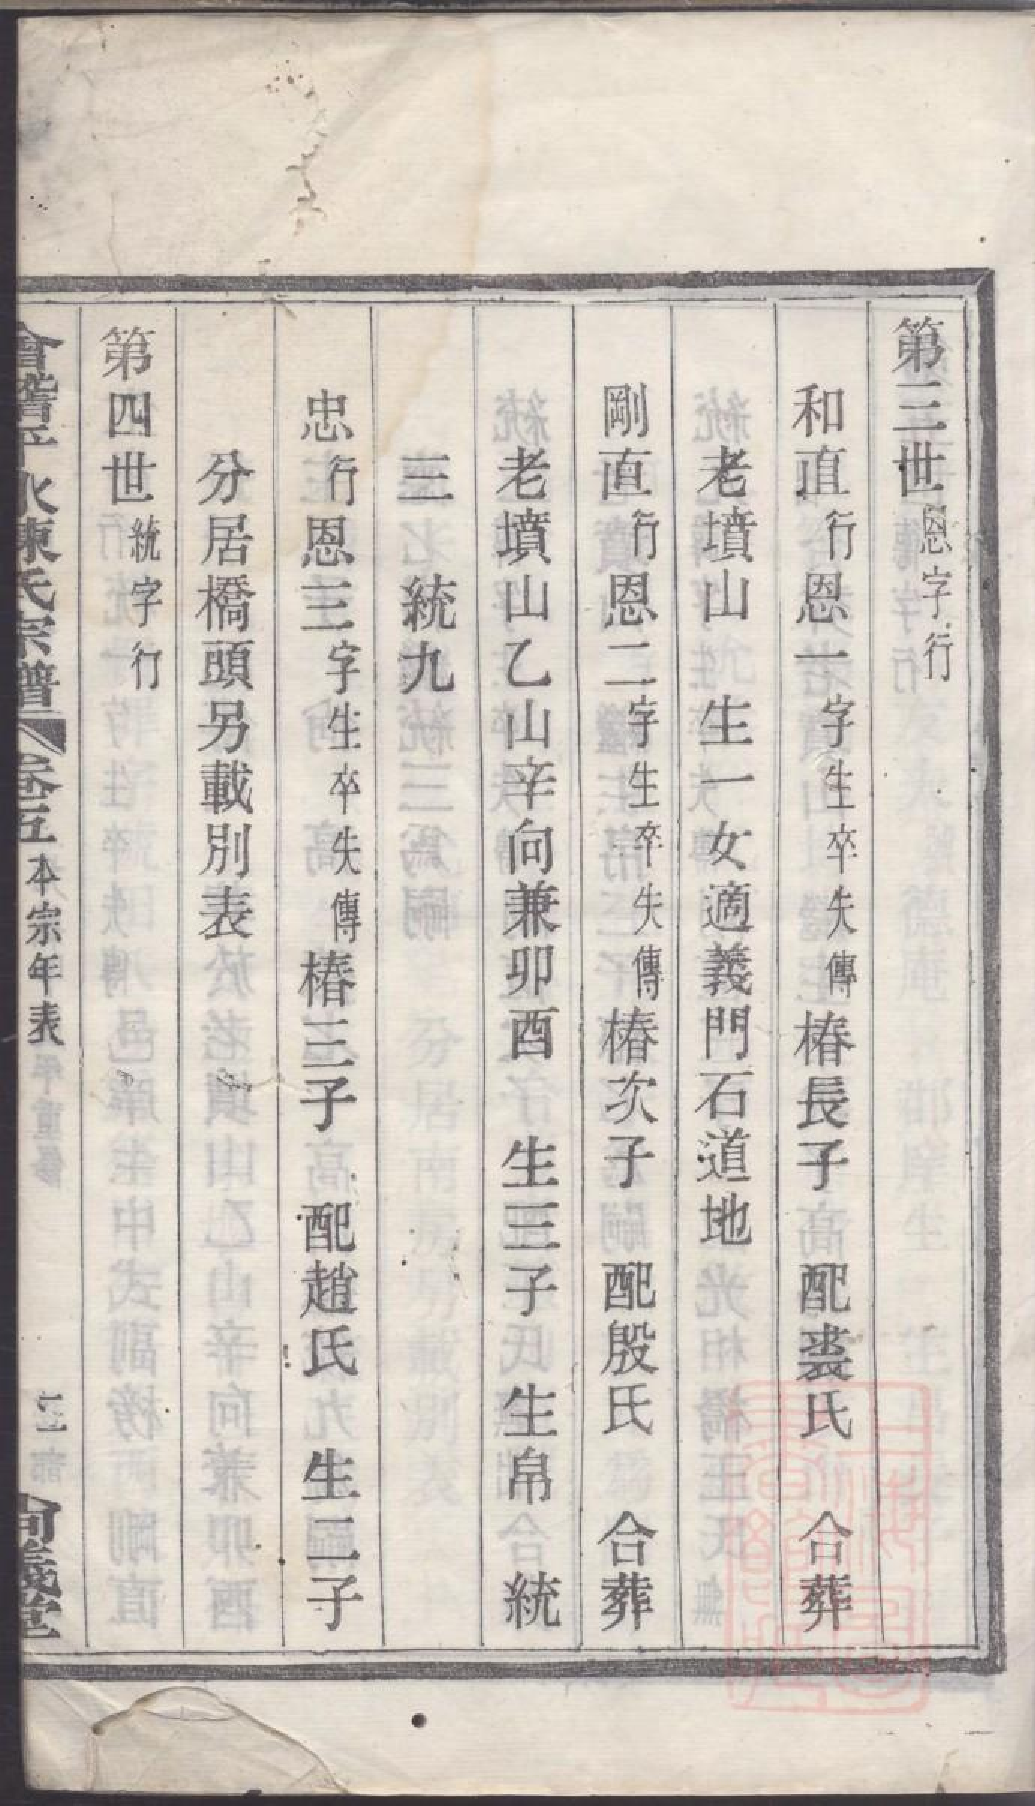 第三世恩字行
和直行恩一字生卒失傳椿長子 配裘氏 合葬
老墳山 生一女適義門石道地
剛直行恩二字生卒失傳椿次子 配殷氏 合葬
老墳山乙山辛向兼卯酉 生三子 生帛 統
三 統九
忠行恩三字生卒失傳椿三子 配趙氏 生二子
分居橋頭另載別表
第四世統字行
會稽平水陳氏宗譜 卷五 本宗年表 二 尚義堂